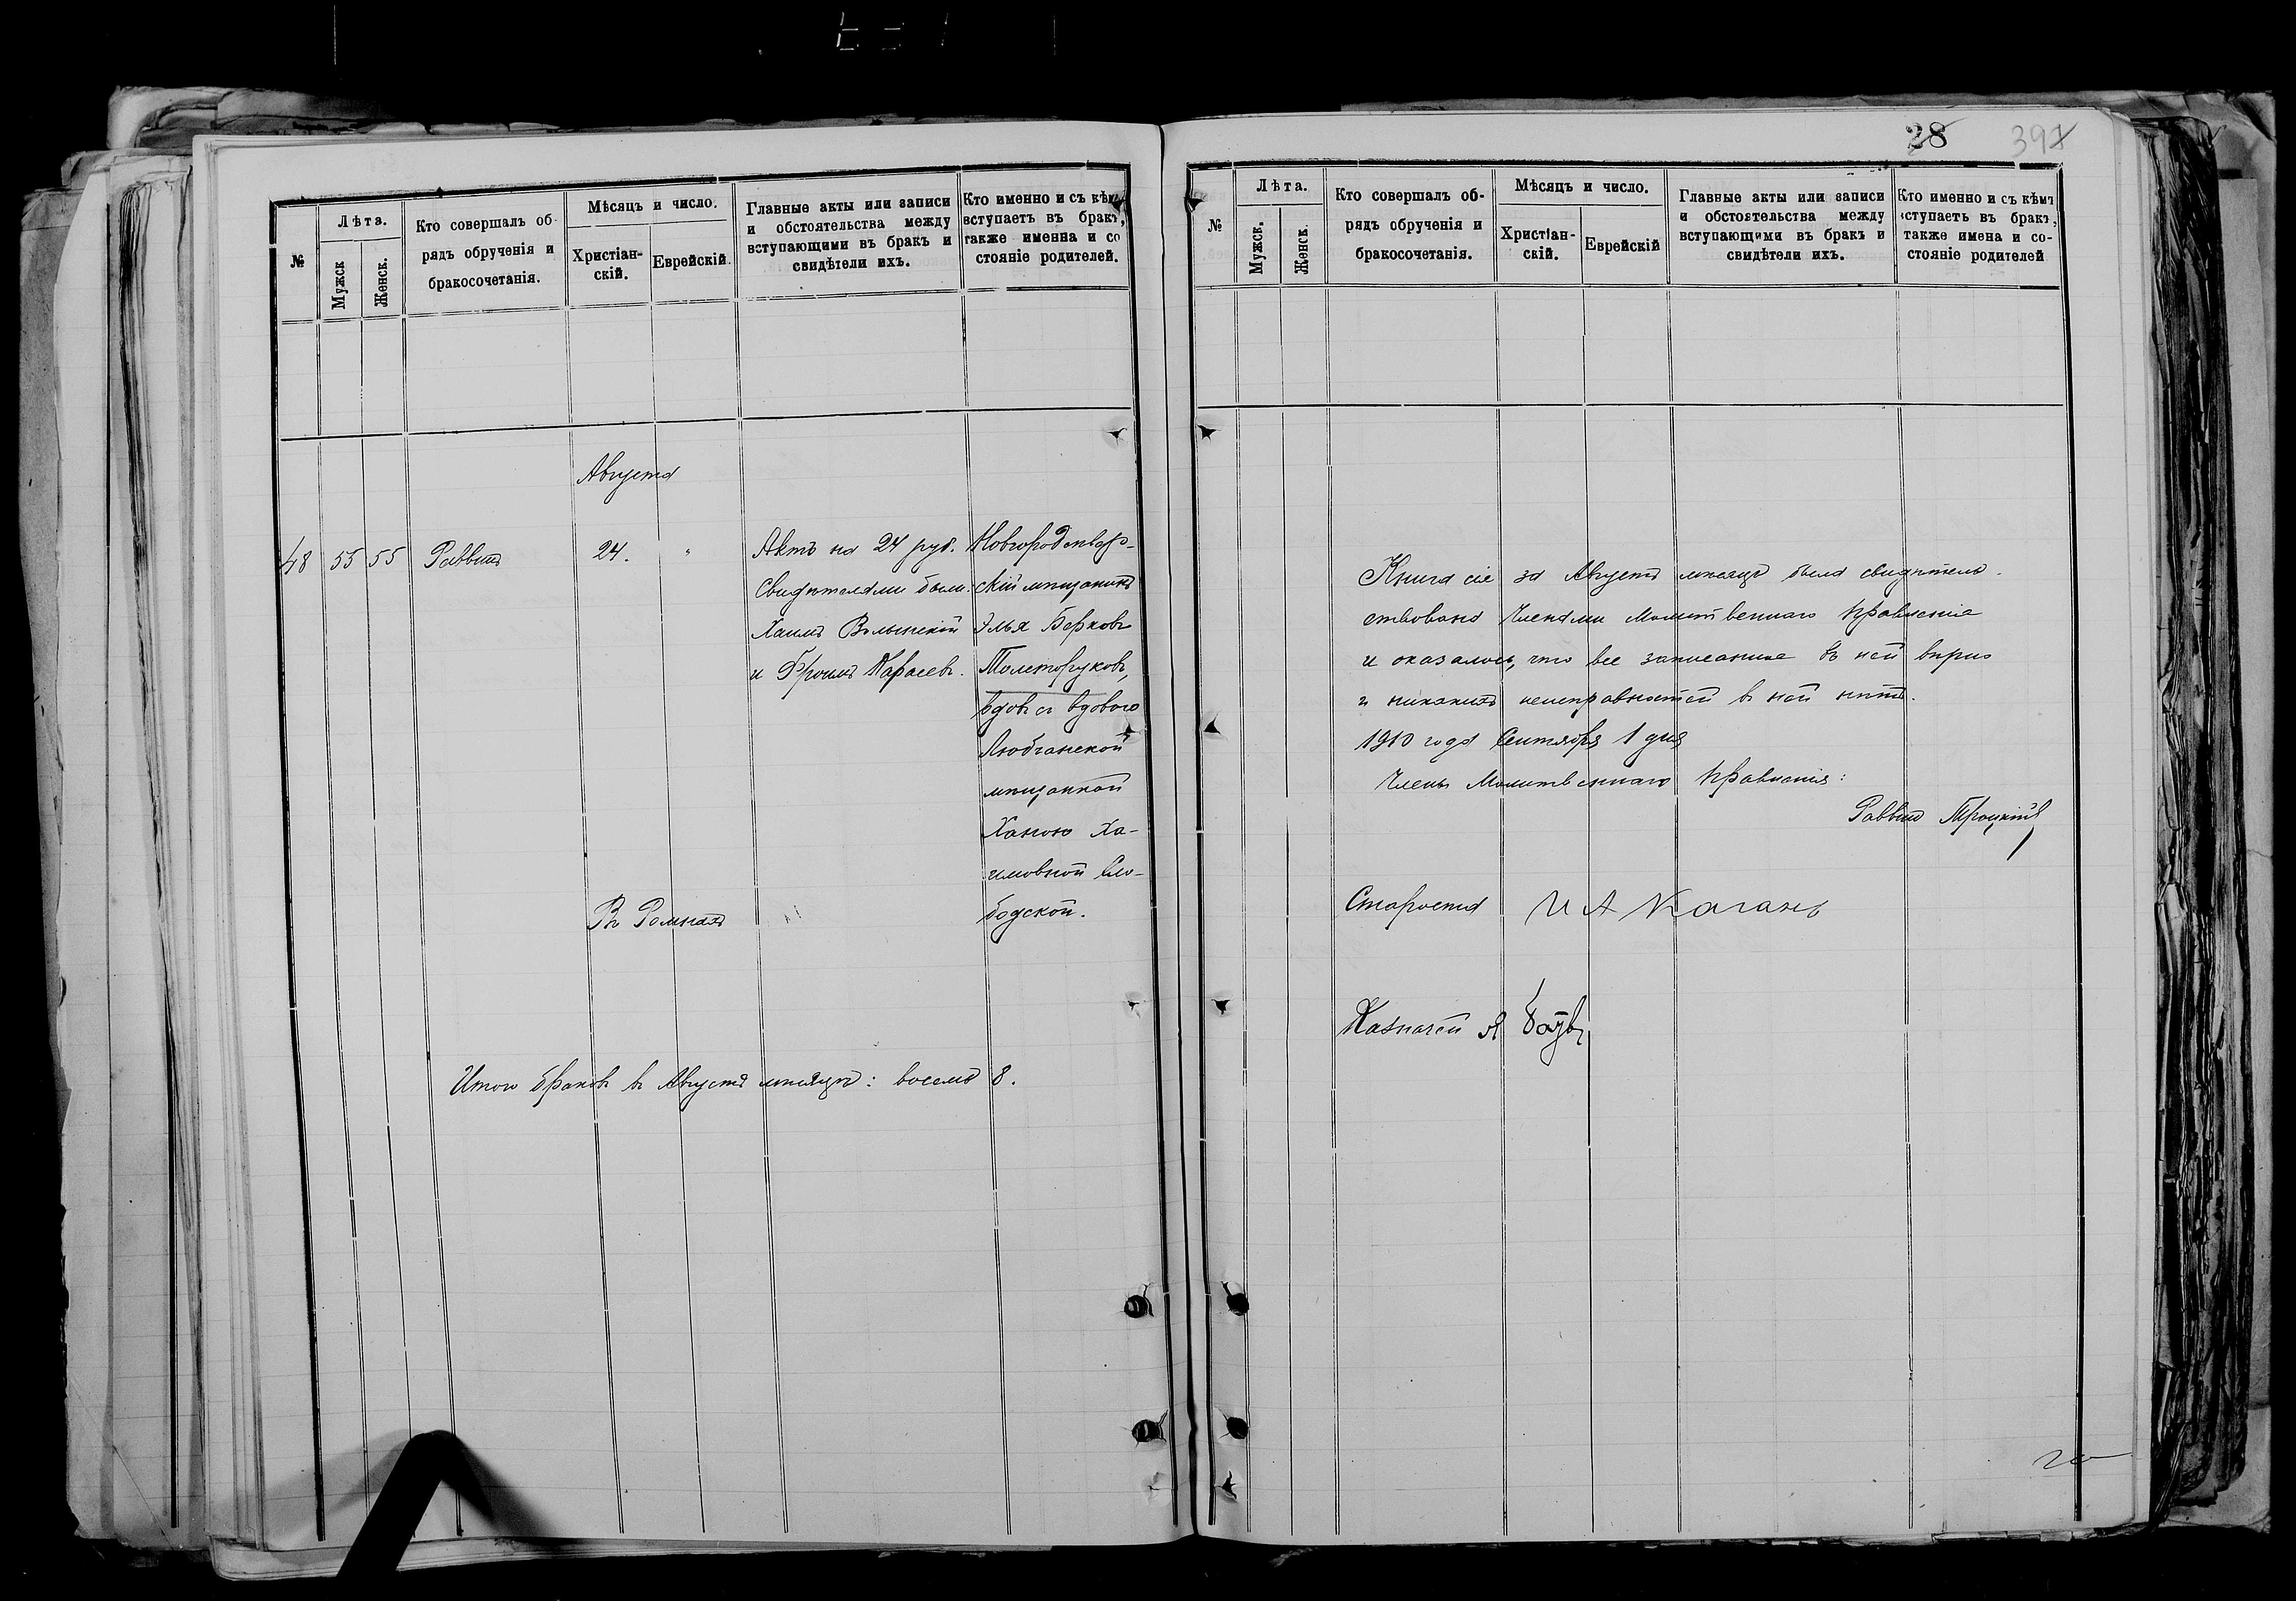 28 397
№
Лѣта.
Мужск
Женск.
Кто совершалъ об-
рядъ обрученія и
бракосочетанія.
Мѣсяцъ и число.
Христіан-
скій.
Еврейскій.
Главные акты или записи
и обстоятельства между
вступающими въ бракъ и
свидѣтели ихъ.
Кто именно и съ кѣмъ
вступаетъ въ бракъ,
также именна и со
стояніе родителей.
Августа
48 55 55 Раввинъ 24. "
Актъ на 24 руб.
Свидѣтелями были:
Хаимъ Волынскій
и Фроимъ Карасевъ.
Новгородсѣвер-
скій мѣщанинъ
Элья Берковъ
Толсторуковъ,
вдовъ съ вдовою
Любчанской
мѣщанкой
Ханою Ха-
имовной Сло-
бодской.
Въ Ромнахъ
Итого браковъ въ Августѣ мѣсяцѣ: восемь 8.
№
Лѣта.
Мужск.
Женск.
Кто совершалъ об-
рядъ обрученія и
бракосочетанія.
Мѣсяцъ и число.
Христіан-
скій.
Еврейскій
Главные акты или записи
и обстоятельства между
вступающими въ бракъ и
свидѣтели ихъ.
Кто именно и съ кѣмъ
вступаетъ въ бракъ,
также имена и со-
стояніе родителей
Книга сія за Августъ мѣсяцъ была свидѣтель-
ствована Членами Молитвеннаго Правленія
и оказалось, что все записанное въ ней вѣрно
и никакихъ неисправностей въ ней нѣтъ.
1910 года Сентября 1 дня
Члены Молитвеннаго Правленія:
Раввинъ Троцкій
Староста И А Каганъ
Казначей Я